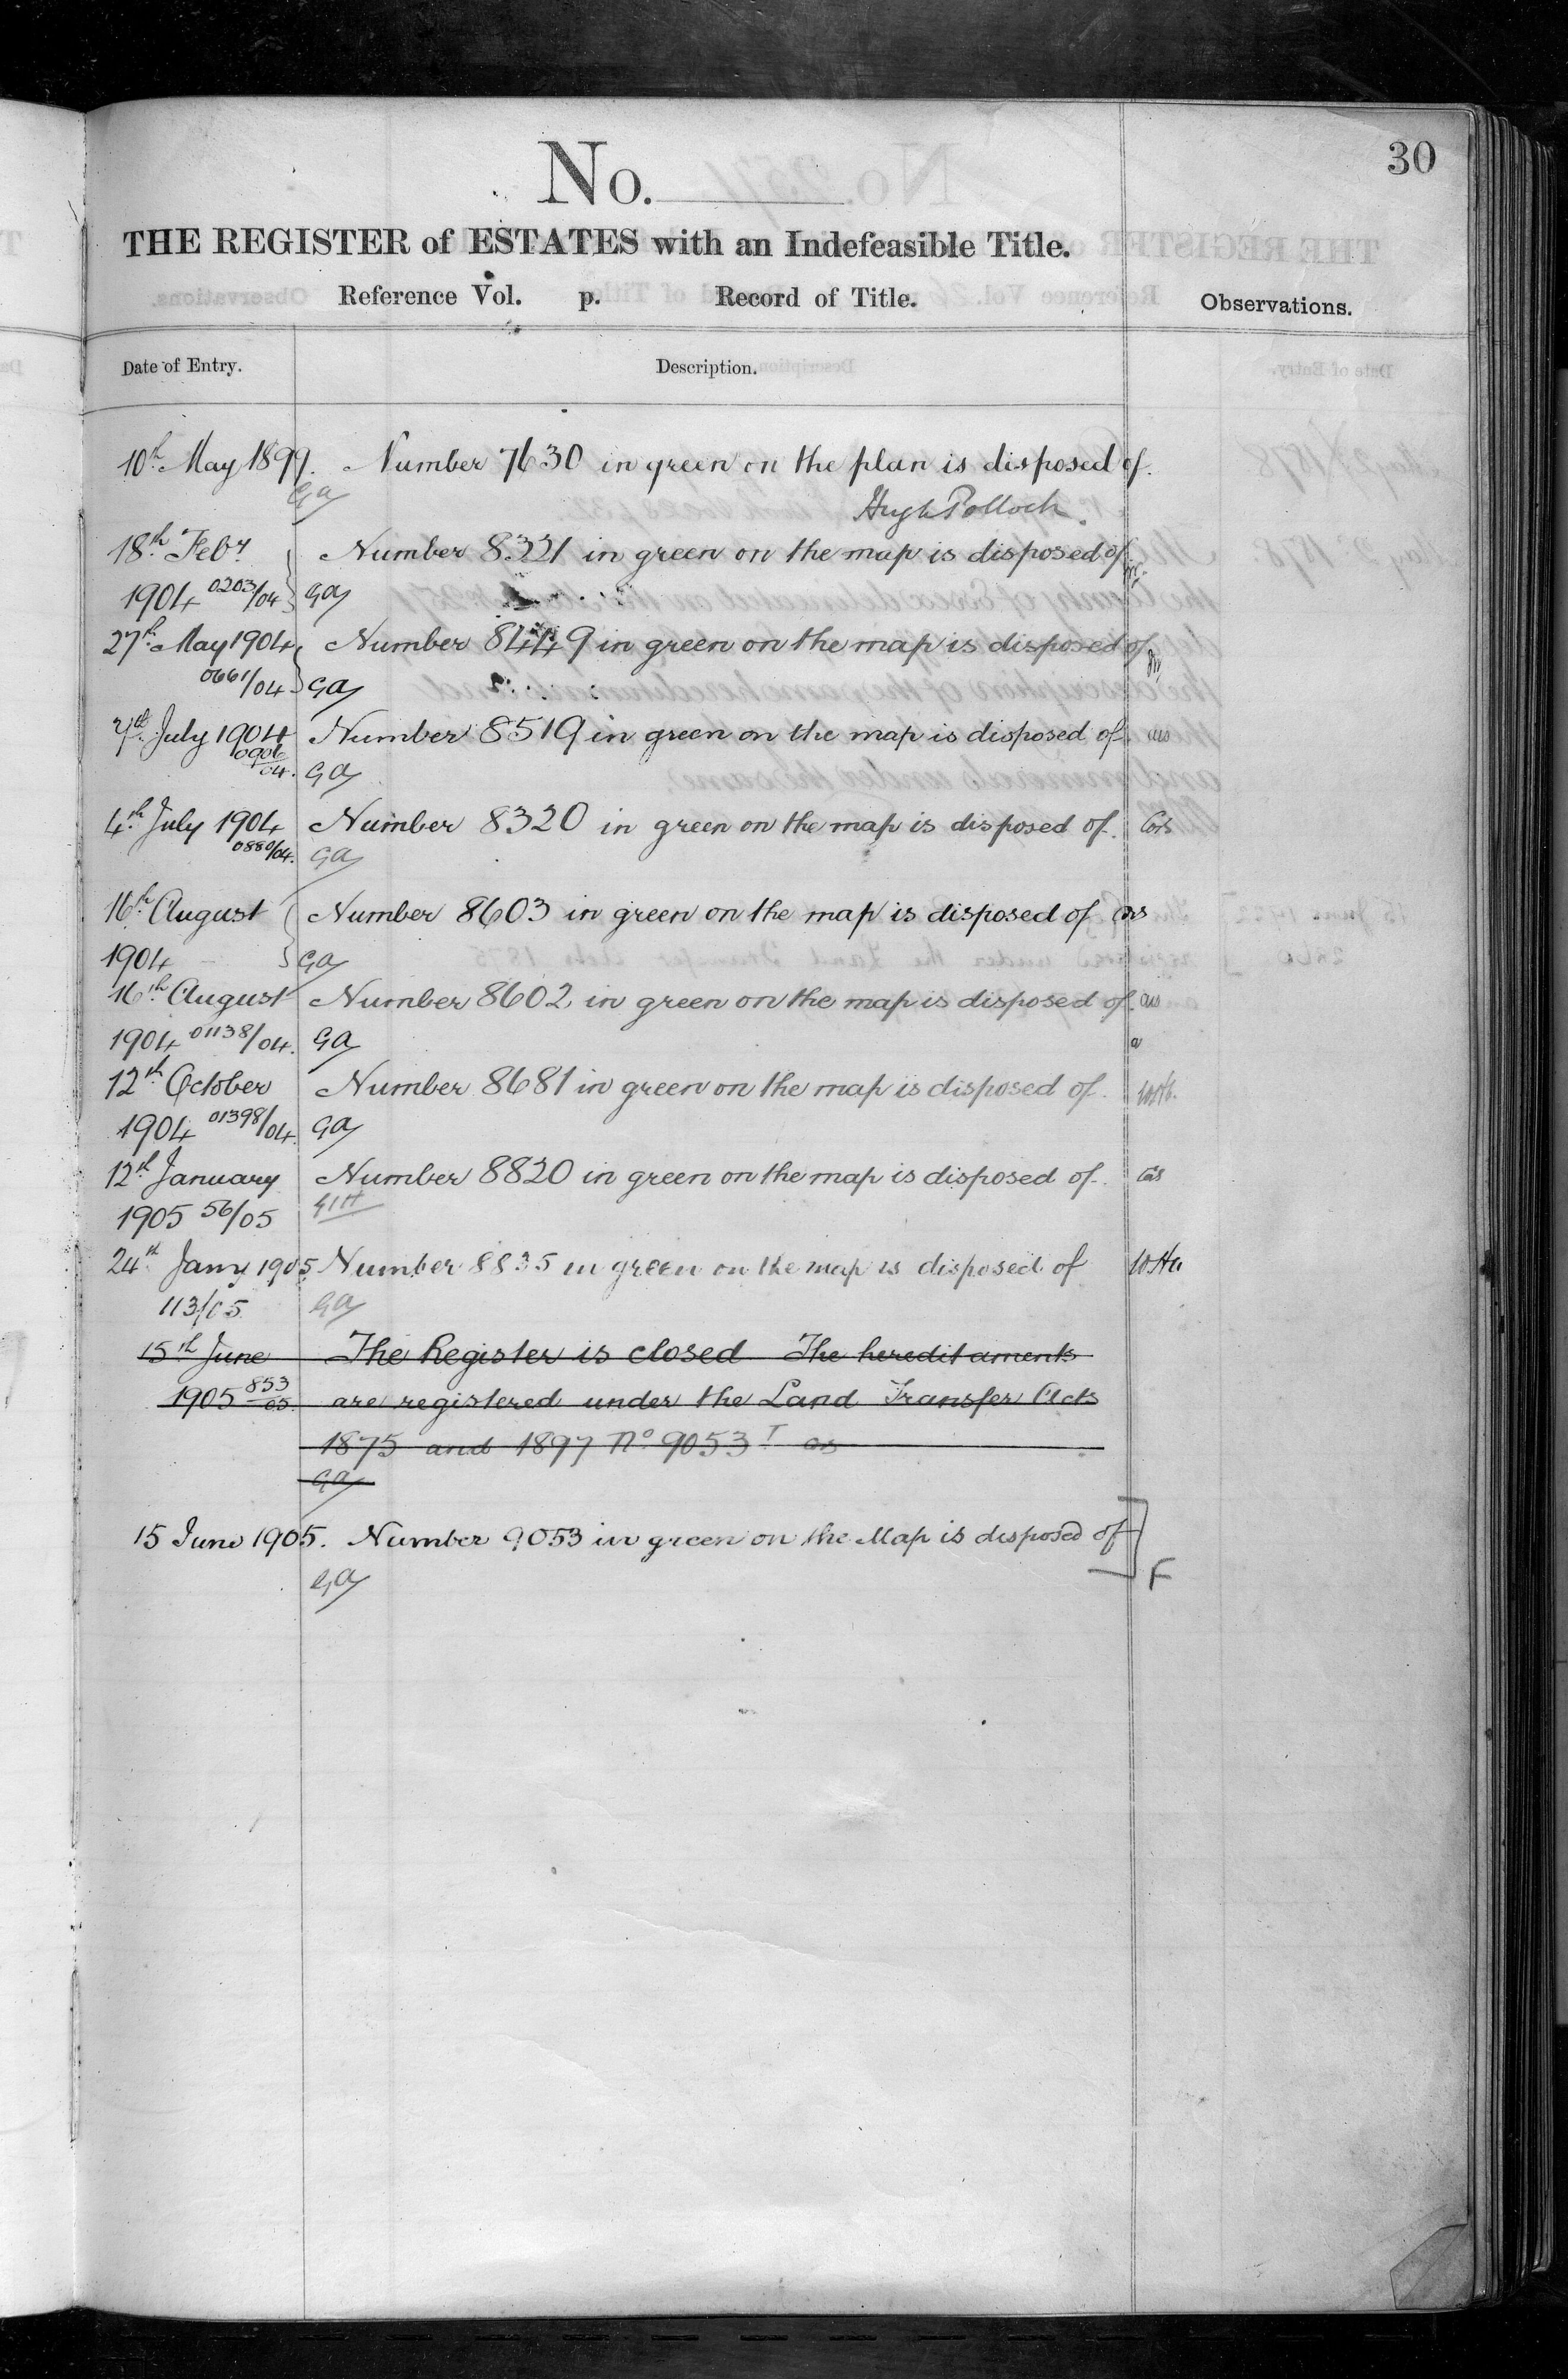 30
No.
THE REGISTER of ESTATES with an Indefeasible Title.
Reference Vol. p. Record of Title.
Observations.
Date of Entry. Description.
10th May 1899. Number 7630 in green on the plan is disposed of.
GA
Hugh Pollock.
18th Feby Number 8321 in green on the map is disposed of
1904 0203/04 GA
27th May 1904 Number 8449 in green on the map is disposed of
0661/04 GA
July 1904 Number 8519 in green on the map is disposed of.
04. GA
4th July 1904 Number 8320 in green on the map is disposed of.
0880/04. GA
16th August Number 8603 in green on the map is disposed of
1904 GA
16th August Number 8602 in green on the map is disposed of.
1904 01138/04. GA
12th October Number 8681 in green on the map is disposed of.
1904 01398/04. GA
12th January Number 8820 in green on the map is disposed of.
1905 56/05
24th Jany 1905 Number 8835 in green on the map is disposed of
113/05 GA
15th June The Register is closed The hereditaments
1905 853/05 are registered under the Land Transfer Acts
1875 and 1897 No 9053
GA
15 June 1905. Number 9053 in green on the Map is disposed of
GA F